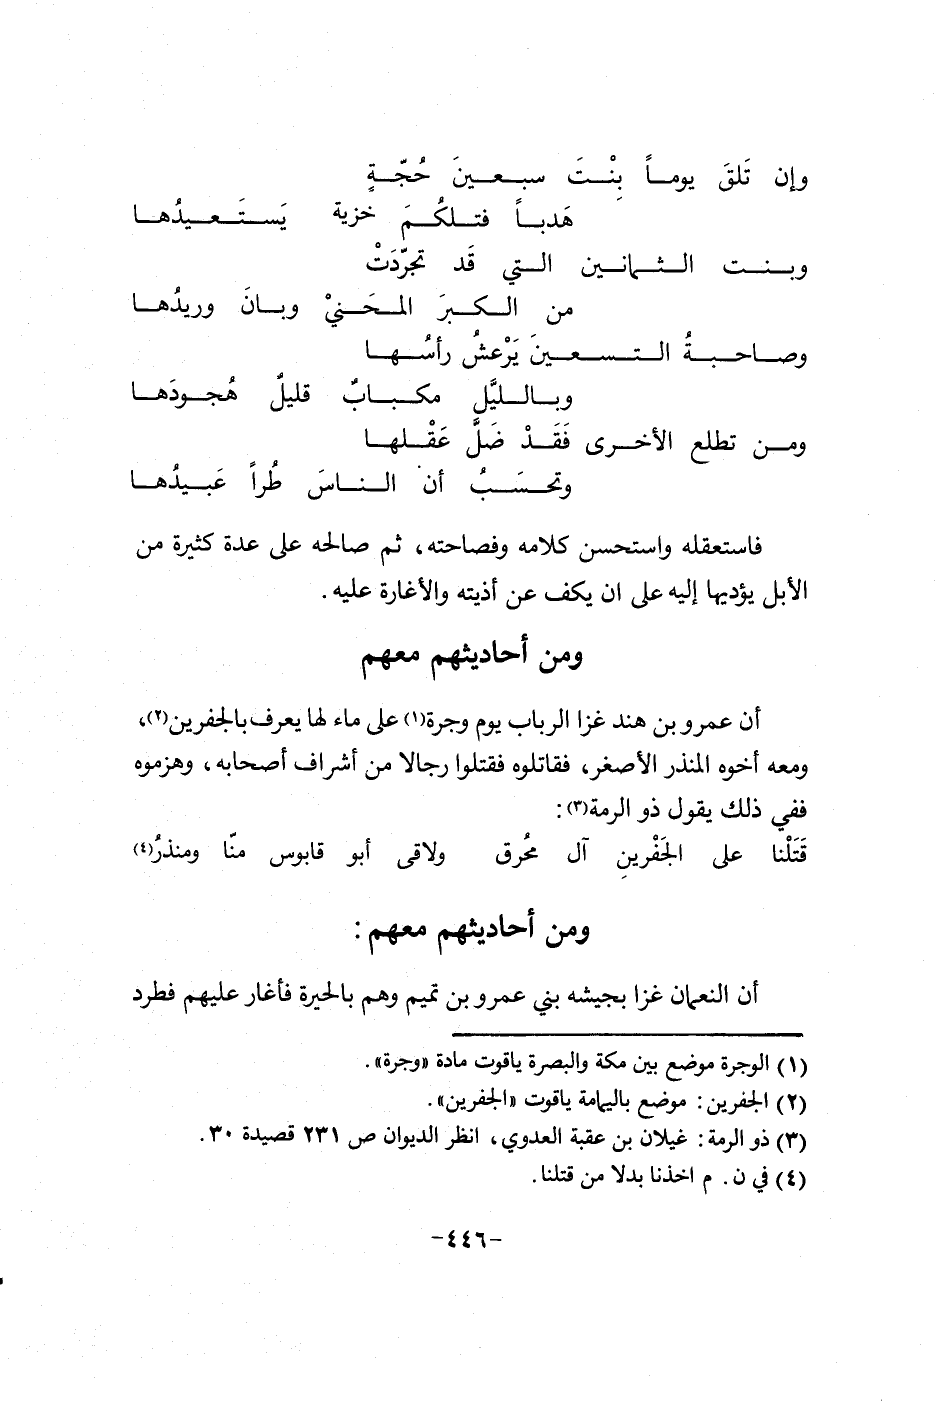 وإن تَلقَ يومـاً بِنْـتَ سبـعـينَ حُجّـةٍ
هَدبـاً فتـلكُـمَ خزية يَستَـعـيدُهـا
وبـنـت الـثـمانـين الـتي قَد تجرّدَتْ
من الـكـبـرَ المـحَـنيْ وبـانَ وريدُهـا
وصـاحـبـةُ الـتـسـعـينَ يَرْعشُ رأسُـهـا
وبـالـليَّل مكـبـابٌ قليلٌ هُجـودَهـا
ومـن تطلع الأخـرى فَقَـدْ ضَلَّ عَقْـلهـا
وتحـسَـبُ أن الـنـاسَ طُراً عَبـيدُهـا
فاستعقله واستحسن كلامه وفصاحته، ثم صالحه على عدة كثيرة من
الأبل يؤديها إليه على ان يكف عن أذيته والأغارة عليه.
ومن أحاديثهم معهم
أن عمرو بن هند غزا الرباب يوم وجرة(١) على ماء لها يعرف بالجفرين(٢)،
ومعه أخوه المنذر الأصغر، فقاتلوه فقتلوا رجالا من أشراف أصحابه، وهزموه
ففي ذلك يقول ذو الرمة(٣):
قَتَلْنا على الجَفْرينِ آل محُرق ولاقى أبو قابوس منّا ومنذرُ(٤)
ومن أحاديثهم معهم:
أن النعمان غزا بجيشه بني عمرو بن تميم وهم بالحيرة فأغار عليهم فطرد
(١) الوجرة موضع بين مكة والبصرة ياقوت مادة «وجرة».
(٢) الجفرين: موضع باليمامة ياقوت «الجفرين».
(٣) ذو الرمة: غيلان بن عقبة العدوي، انظر الديوان ص ٢٣١ قصيدة ٣٠.
(٤) في ن. م اخذنا بدلا من قتلنا.
-٤٤٦-